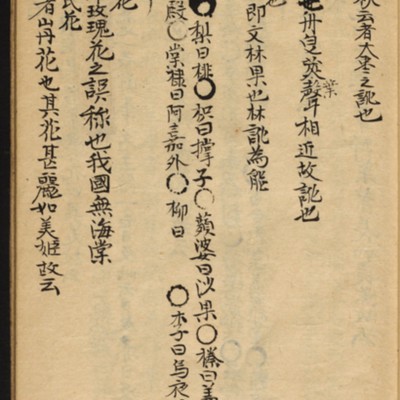 云者大棗之訛也
葉
聲相近故訛也
也
即文林果也林訛為能
梨曰 ○枳曰撑子○蘋婆曰沙果○榛曰
殿○棠棣曰阿嘉外○柳曰 ○木子曰烏夜
花
玫瑰花之誤称也我國無海棠
氏花
者山丹花也其花甚麗如美姬故云